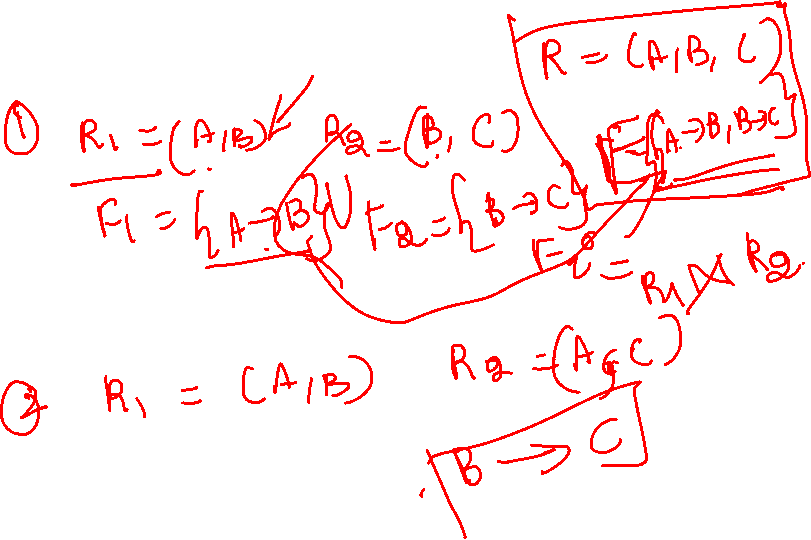 R = (A, B, C)
F = {A → B, B → C}
① R₁ = (A, B) R₂ = (B, C)
F₁ = {A → B} U F₂ = {B → C}
Fᵢ =
R₁ ⋈ R₂
② R₁ = (A, B) R₂ = (A, C)
B → C